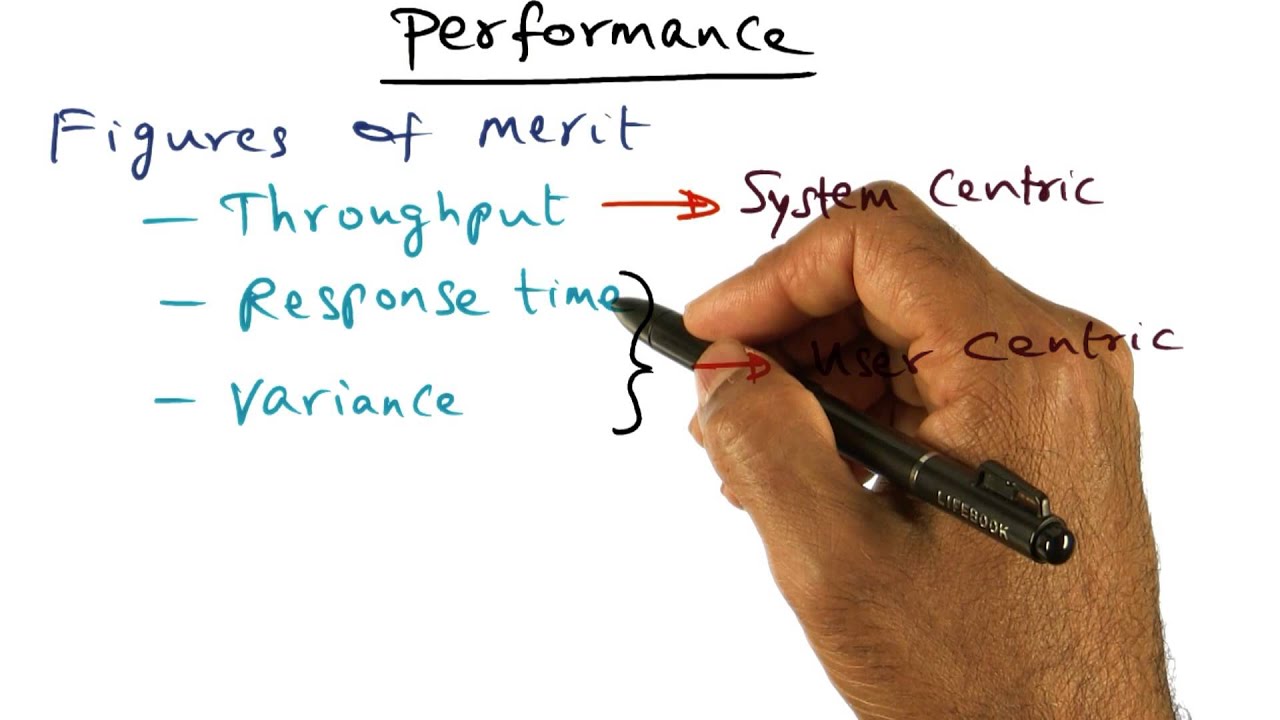 Performance
Figures of merit
— Throughput → System Centric
— Response time
→ User Centric
— Variance
LIFEBOOK